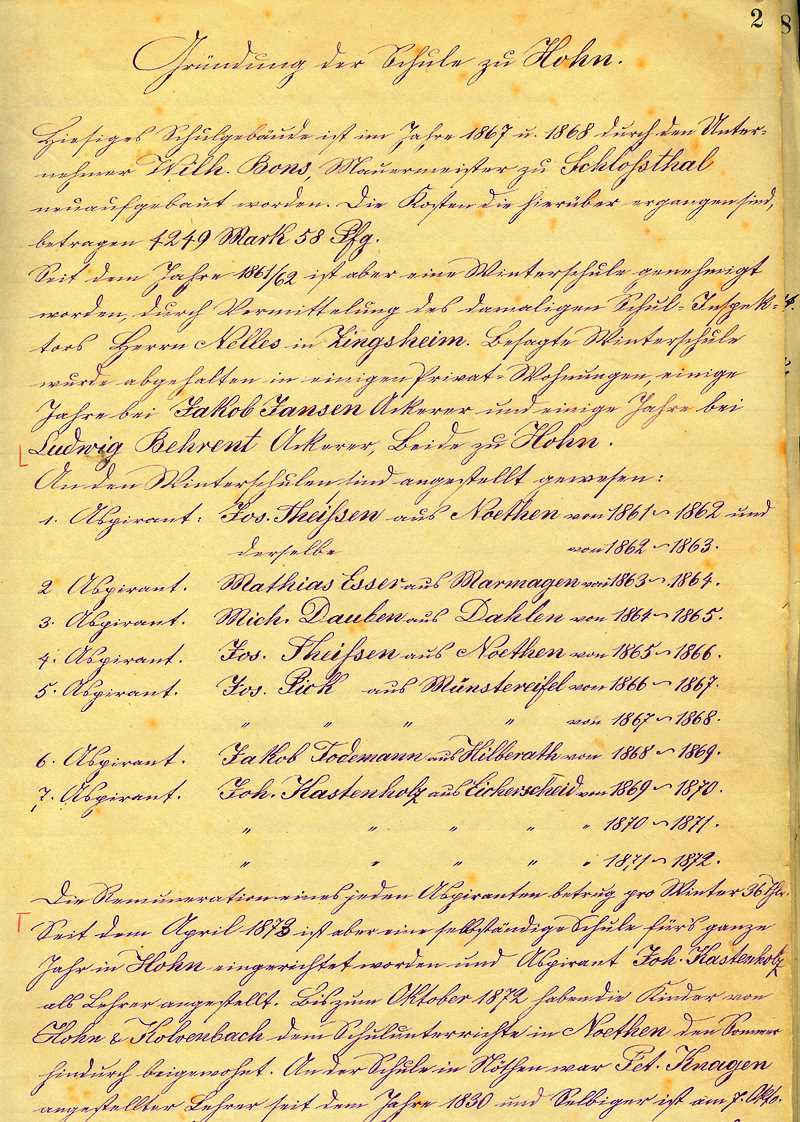 2
8
Gründung der Schule zu Hohn.
Hiesiges Schulgebäude ist im Jahre 1867 u. 1868 durch den Unter-
nehmer Wilh. Bons, Mauermeister zu Schlossthal
neuaufgebaut worden. Die Kosten die hierüber ergangen sind,
betragen 4249 Mark 58 Pfg.
Seit dem Jahre 1861/62 ist aber eine Winterschule genehmigt
worden, durch Vermittelung des damaligen Schul-Inspek-
tors Herrn Nelles in Zingsheim. Besagte Winterschule
wurde abgehalten in einigen Privat-Wohnungen, einige
Jahre bei Jakob Jansen Ackerer und einige Jahre bei
Ludwig Behrent Ackerer, Beide zu Hohn.
An den Winterschulen sind angestellt gewesen:
1. Aspirant. Jos. Theißen aus Noethen von 1861 ~ 1862 und
derselbe von 1862 ~ 1863.
2 Aspirant. Mathias Esser aus Marmagen von 1863 ~ 1864.
3. Aspirant. Mich. Dauben aus Dahlen von 1864 ~ 1865.
4. Aspirant. Jos. Theißen aus Noethen von 1865 ~ 1866.
5. Aspirant. Jos. Pick aus Münstereifel von 1866 ~ 1867.
" " " " von 1867 ~ 1868.
6. Aspirant. Jakob Todemann aus Hilberath von 1868 ~ 1869.
7. Aspirant. Joh. Kastenholz aus Eicherscheid von 1869 ~ 1870.
" " " " " 1870 ~ 1871.
" " " " " 1871 ~ 1872.
Die Remuneration eines jeden Aspiranten betrug pro Winter 36 Thlr.
Seit dem April 1873 ist aber eine selbständige Schule fürs ganze
Jahr in Hohn eingerichtet worden und Aspirant Joh. Kastenholz
als Lehrer angestellt. Bis zum Oktober 1872 haben die Kinder von
Hohn & Kolvenbach dem Schulunterrichte in Noethen den Sommer
hindurch beigewohnt. An der Schule in Nöthen war Pet. Knagen
angestellter Lehrer seit dem Jahre 1830 und Selbiger ist am 7. Okto.